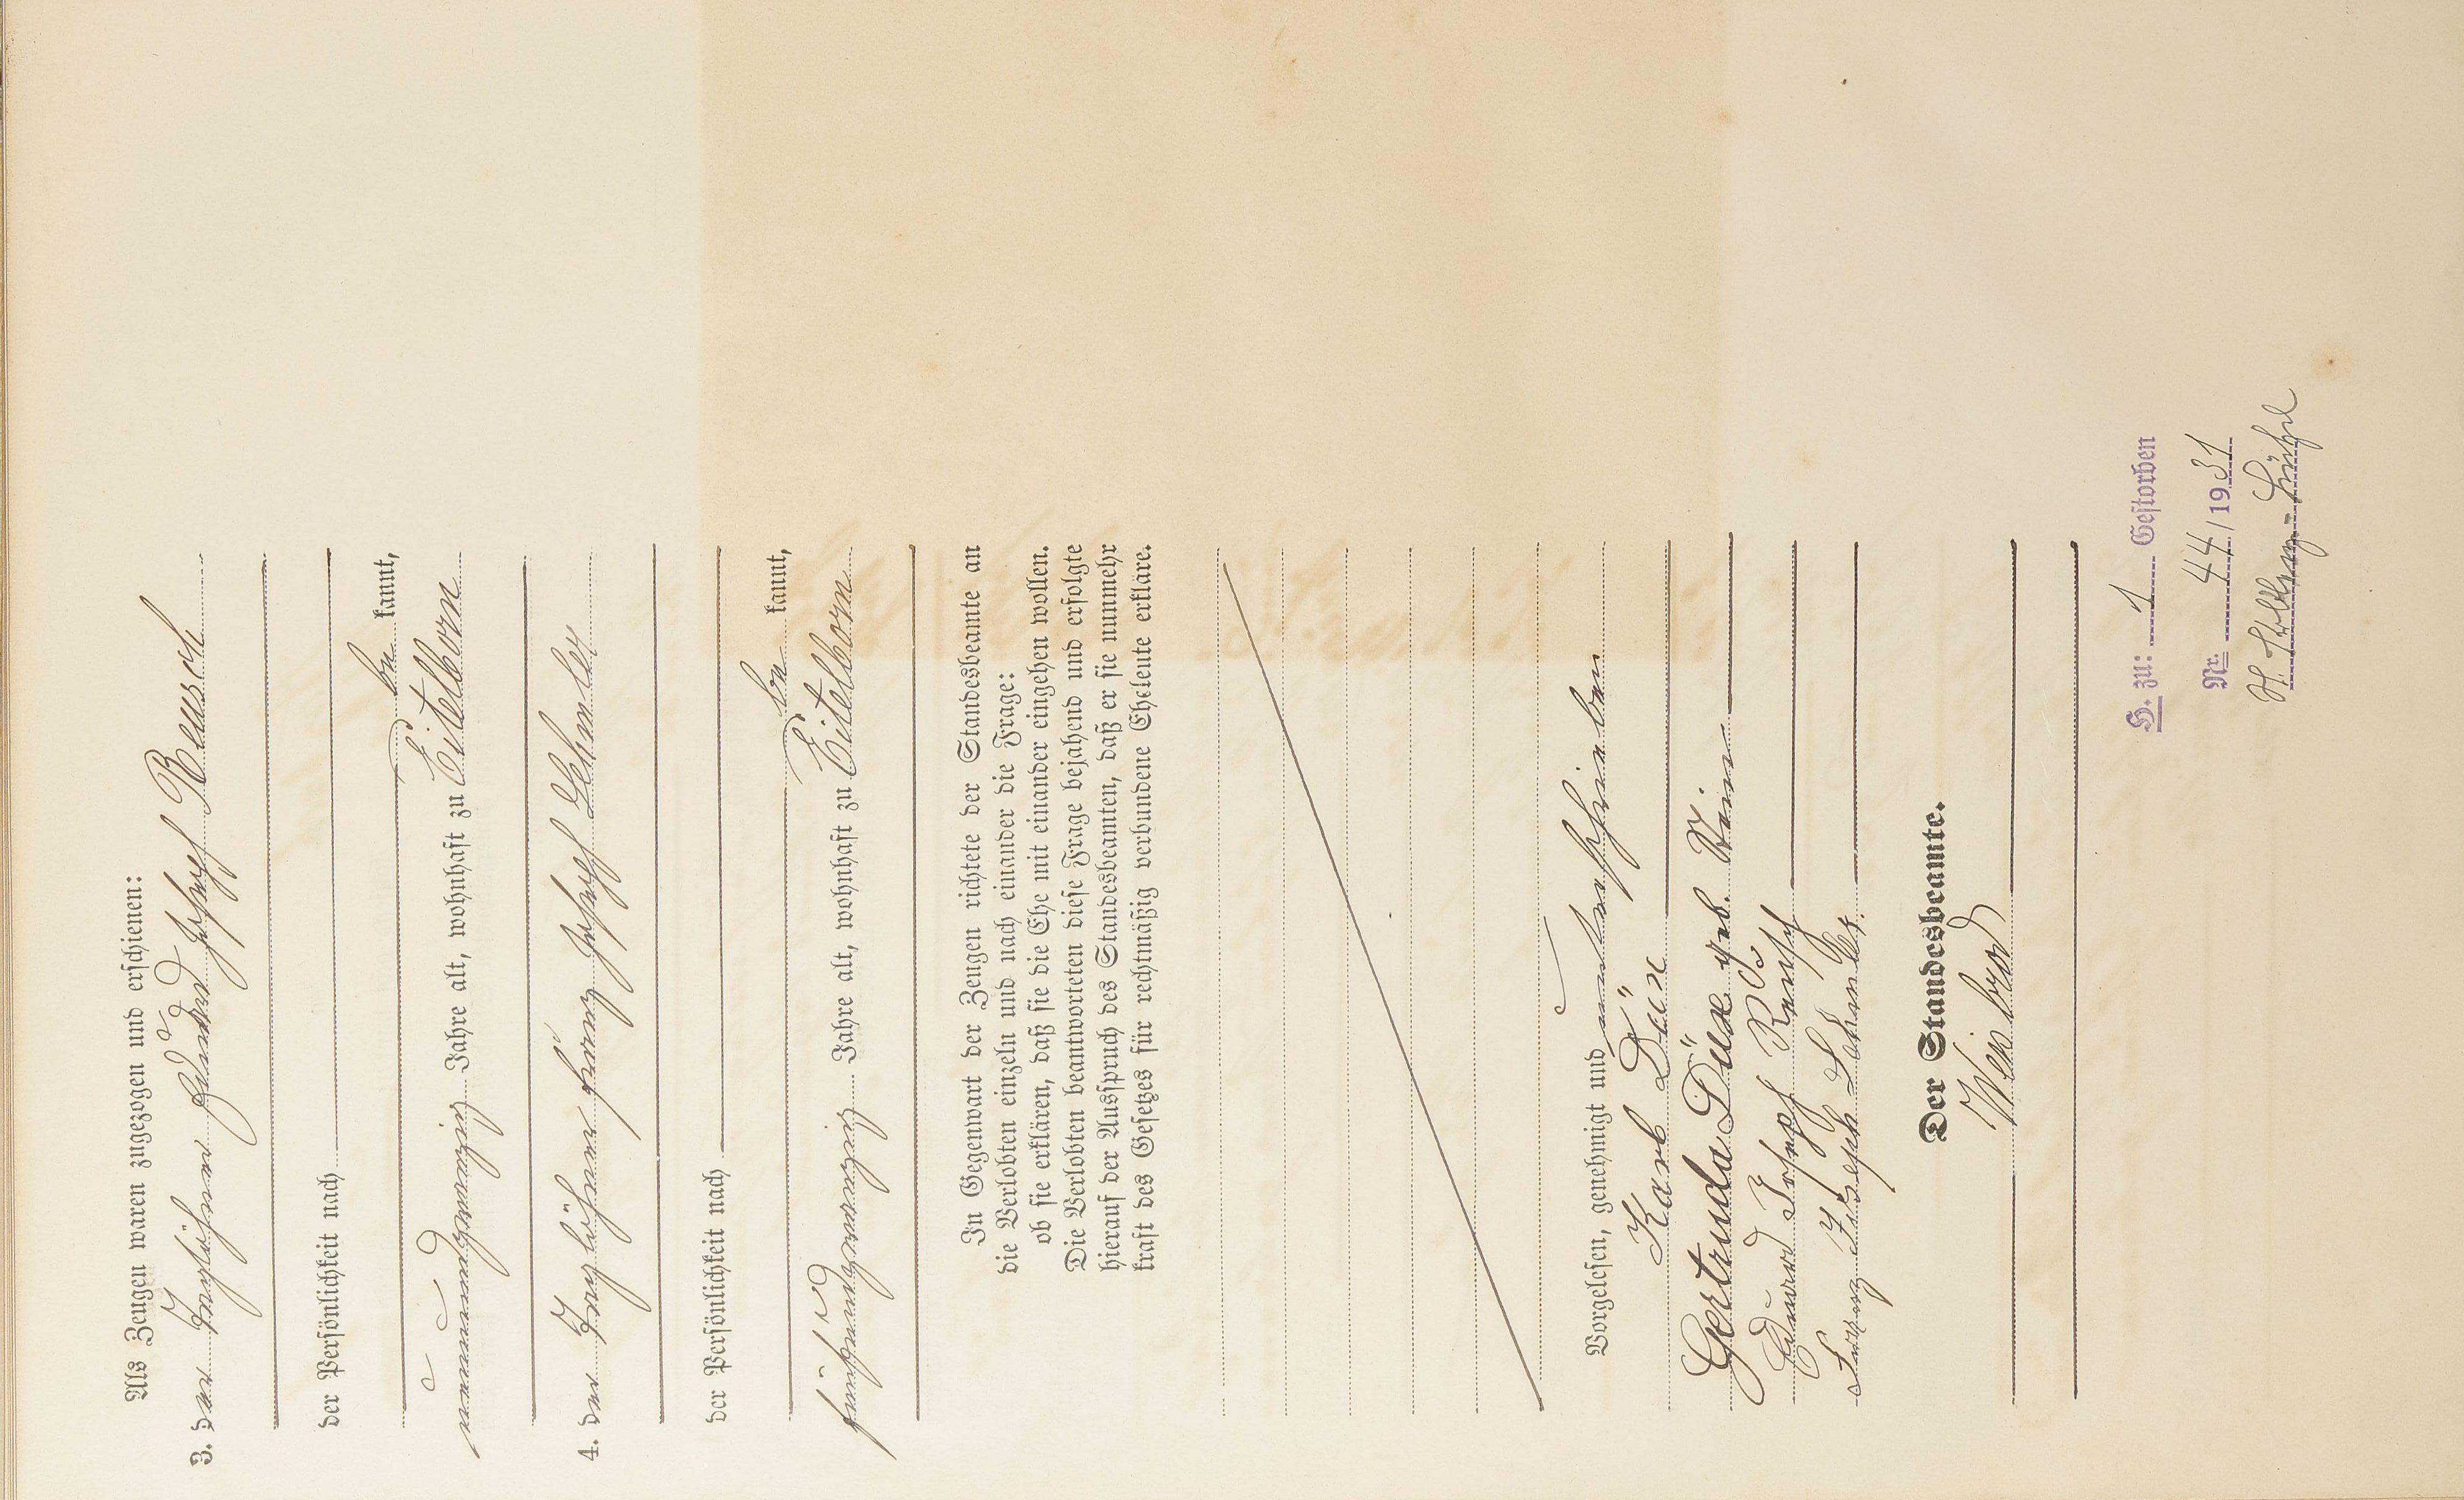 Als Zeugen waren zugezogen und erschienen:
3. der Taglöhner Eduard Joseph Reusch
der Persönlichkeit nach
be kannt,
neunundzwanzig Jahre alt, wohnhaft zu Eitelborn
4. der Taglöhner Lorenz Joseph Schmley
der Persönlichkeit nach
be kannt,
fünfundzwanzig Jahre alt, wohnhaft zu Eitelborn
In Gegenwart der Zeugen richtete der Standesbeamte an
die Verlobten einzeln und nach einander die Frage:
ob sie erklären, daß sie die Ehe mit einander eingehen wollen.
Die Verlobten beantworteten diese Frage bejahend und erfolgte
hierauf der Ausspruch des Standesbeamten, daß er sie nunmehr
kraft des Gesetzes für rechtmäßig verbundene Eheleute erkläre.
Vorgelesen, genehmigt und unterschrieben
Karl Düx
Gertruda Düx geb.
Eduard Josepf Reusch
Lorenz Joseph
Der Standesbeamte.
Weisbrod
H. zu: 1 Gestorben
Nr. 44/1931